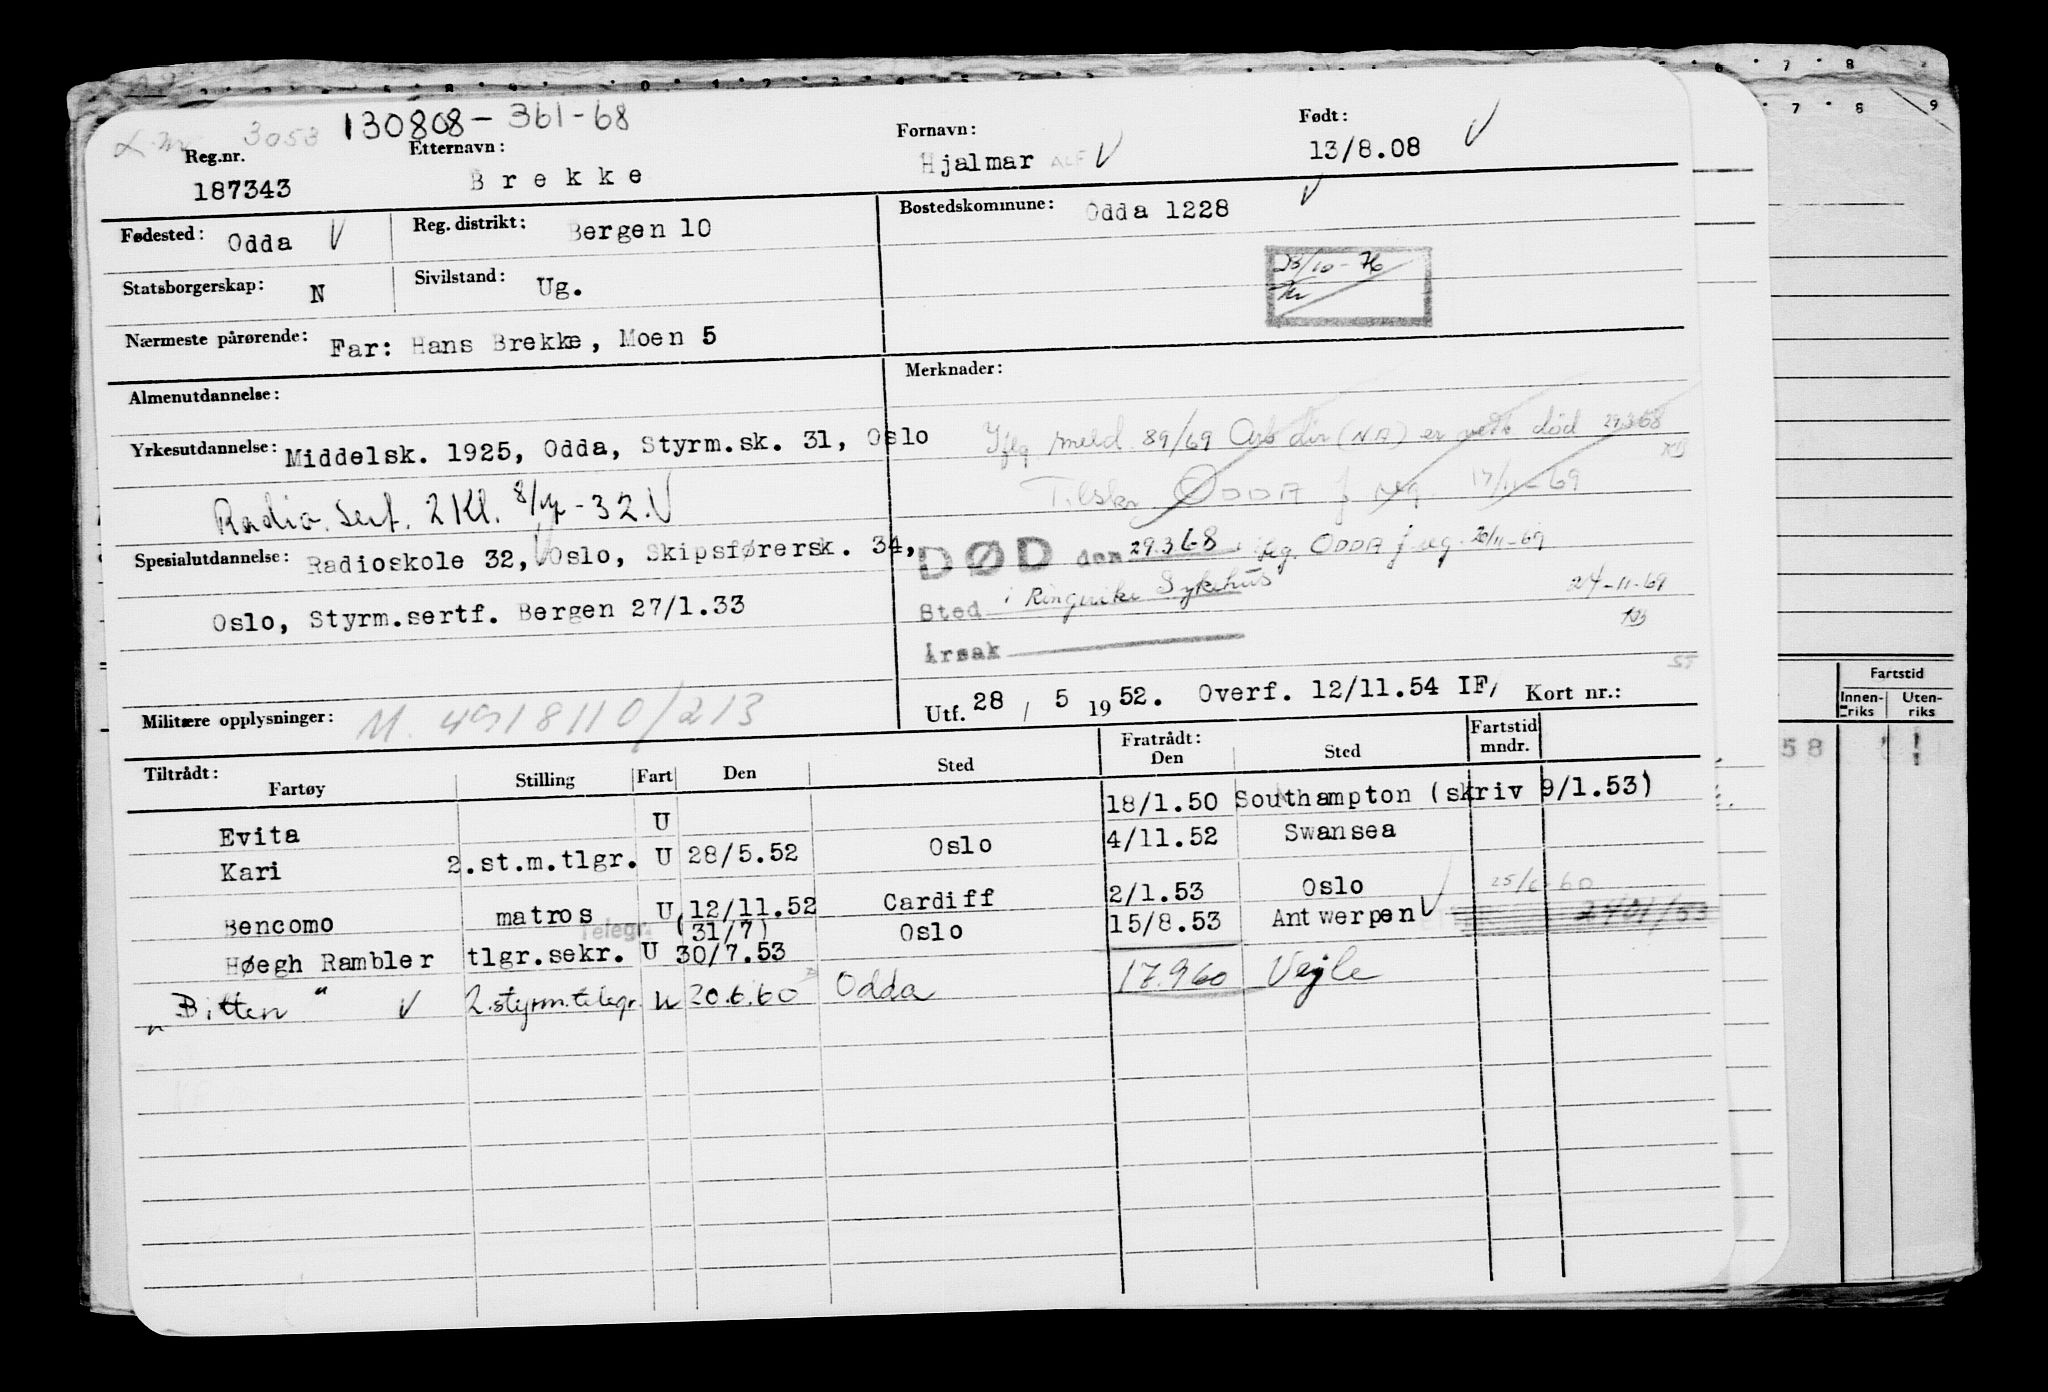 3053 130808-361-68
Reg.nr. Etternavn: Fornavn: Født:
187343 Brekke Hjalmar ALF 13/8.08
Fødested: Odda Reg. distrikt: Bergen 10 Bostedskommune: Odda 1228
Statsborgerskap: N Sivilstand: Ug.
23/10-76
Nærmeste pårørende: Far: Hans Brekke, Moen 5
Almenutdannelse: Merknader:
Yrkesutdannelse: Middelsk. 1925, Odda, Styrm.sk. 31, Oslo
Iflg meld 89/69 Arb dir (NA) er død 29.3.68
Radio. Sert. 2 Kl. -32.
Tilskr. ODDA f reg. 17/11-69
Spesialutdannelse: Radioskole 32, Oslo, Skipsførersk. 34,
Oslo, Styrm.sertf. Bergen 27/1.33
DØD den 29.3.68 . flg. ODDA f reg. 20/11-69
Sted i Ringerike Sykehus 24-11-69
Årsak
Militære opplysninger: M. 4918110/213
Utf. 28 / 5 1952. Overf. 12/11.54 IF/ Kort nr.:
Tiltrådt: Fratrådt: Fartstid
Fartøy Stilling Fart Den Sted Den Sted mndr.
Evita U 18/1.50 Southampton (skriv 9/1.53)
Kari 2.st.m.tlgr. U 28/5.52 Oslo 4/11.52 Swansea
Bencomo matros U 12/11.52 Cardiff 2/1.53 Oslo
Høegh Rambler Telegr. tlgr.sekr. U (31/7) 30/7.53 Oslo 15/8.53 Antwerpen
"Bitten" 2.styrm.telegr. U 20.6.60 Odda 17.9.60 Vejle
Fartstid
Innenriks Utenriks
58